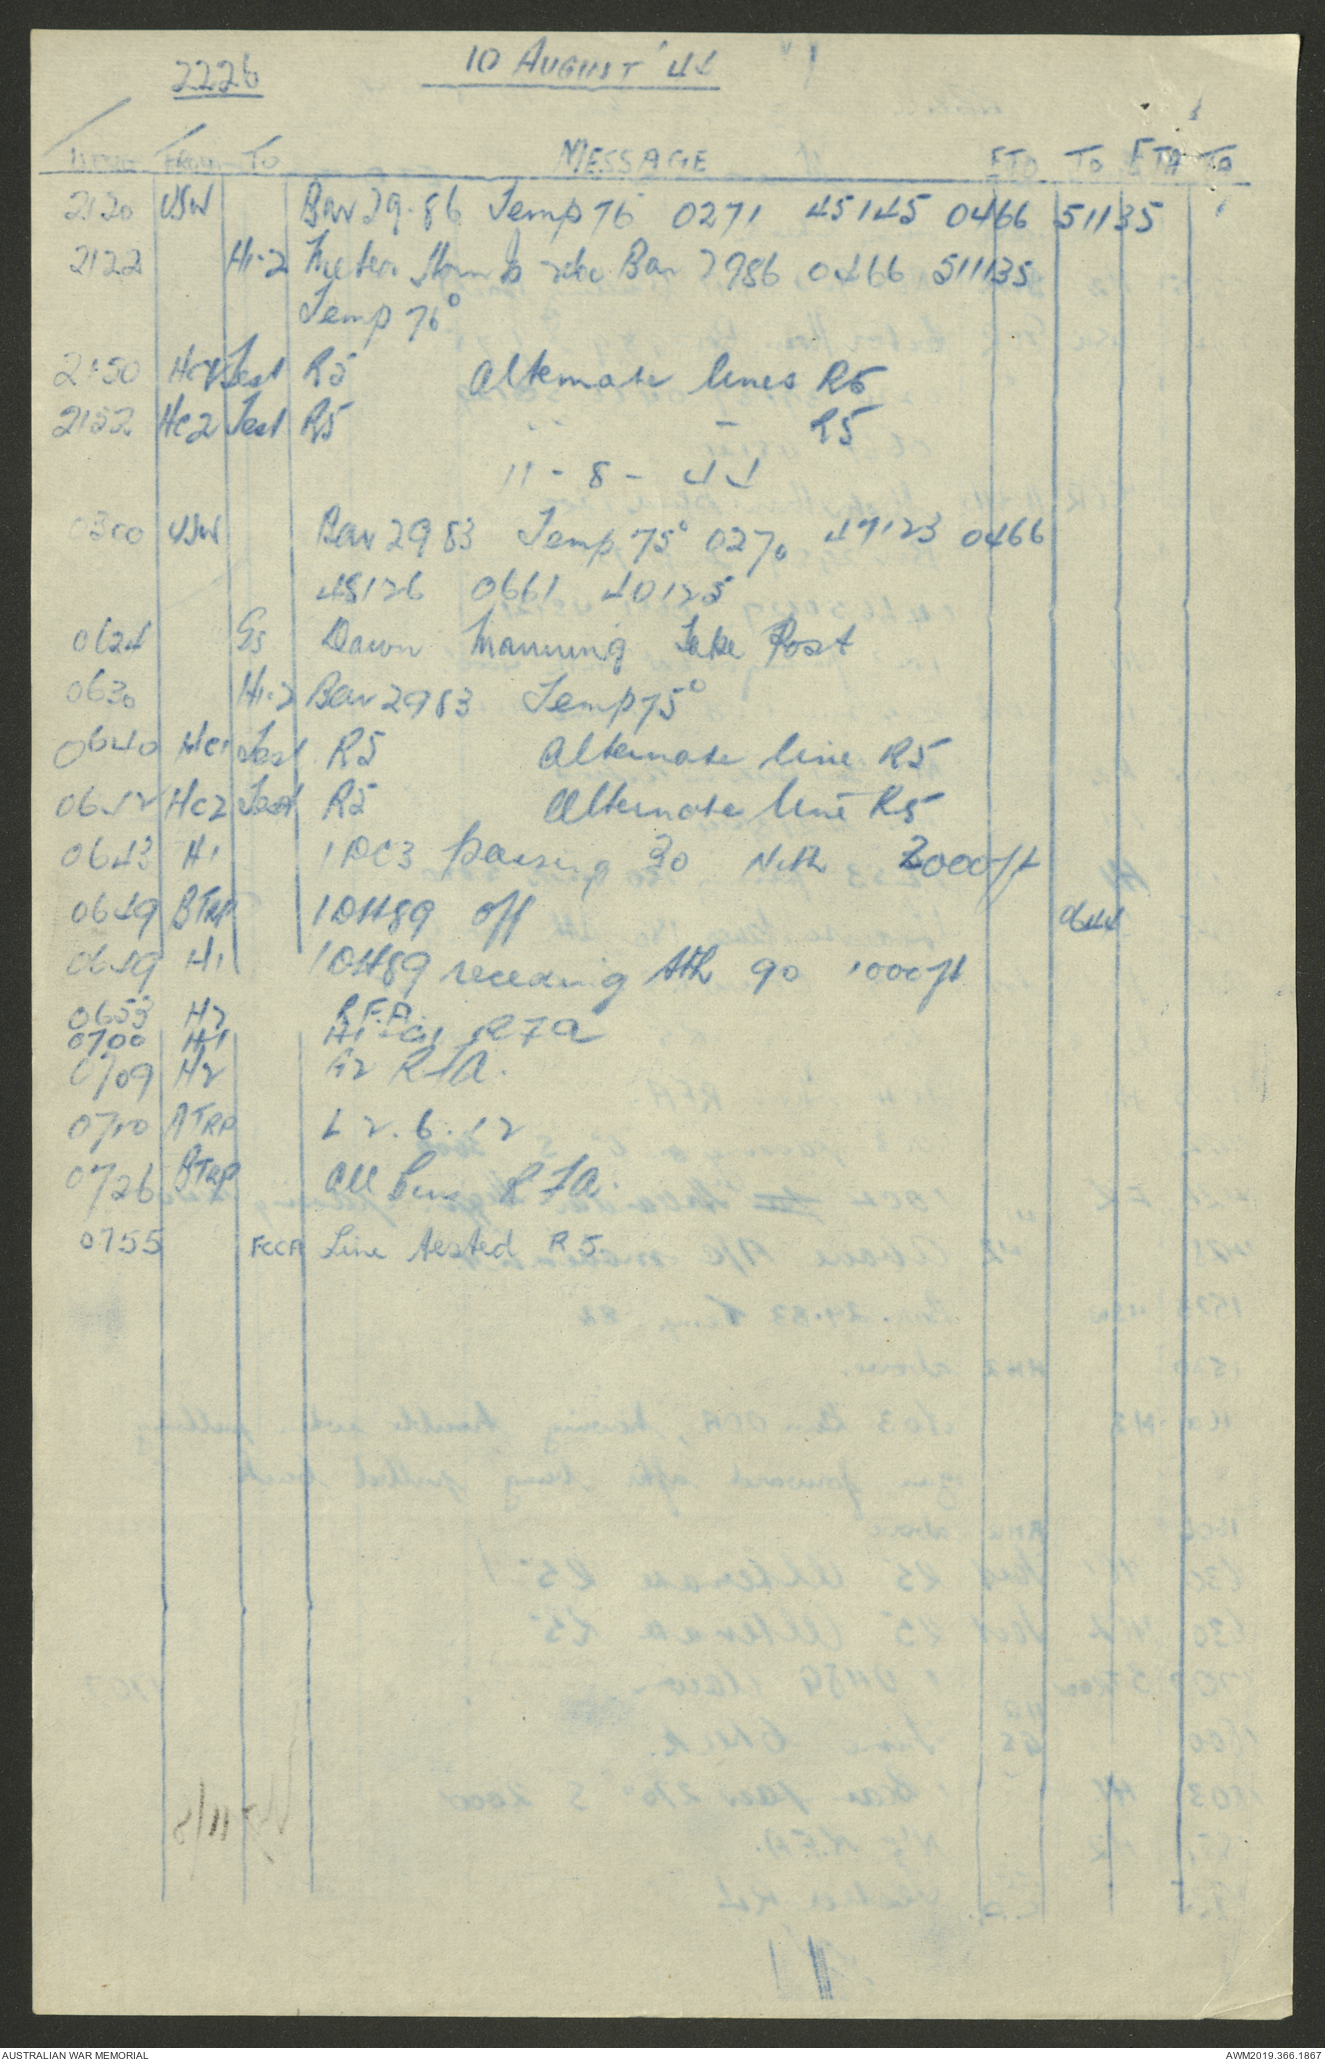 2226 10 AUGUST '44
TIME FROM TO MESSAGE ETD TD ETA TA
2120 VSW Bar 29.86 Temp 76 0271 45145 0466 51135
2122 H1-2 Meteor 2200 Bar 2986 0466 511135
Temp 76°
2150 Test R5 Alternate lines R5
2152 HC2 Test R5 " - R5
11-8-44
0300 VSW Bar 2983 Temp 75° 0270 49123 0466
48126 0661 40125
0624 Gs Dawn Manning Take Post
0630 H1-2 Bar 2983 Temp 75°
0640 HC1 Test R5 Alternate line R5
0642 HC2 Test R5 Alternate line R5
0643 H1 1 DC3 passing 30 Nth 2000 ft
0649 BTRP 1 DH89 off 0644
0649 H1 1 DH89 receding Nth 90 1000 ft
0653 H2 R.F.A.
0700 H1 R F A
0709 H2 G2 R F A.
0710 BTRP L 2.6.12
0726 BTRP All Guns R F A.
0755 FCCR Line tested R 5.
11/8
AUSTRALIAN WAR MEMORIAL AWM2019.366.1867